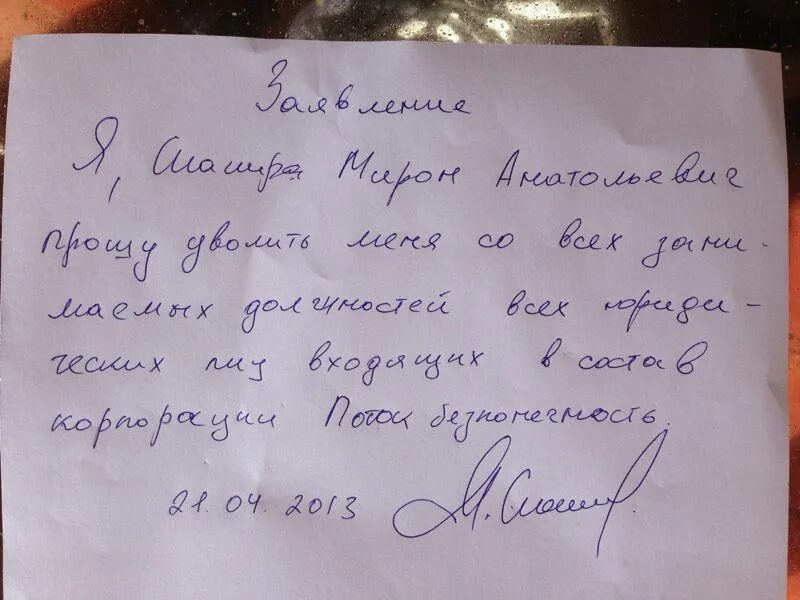 Заявление
Я, Мирон Анатольевич
прошу уволить меня со всех зани-
маемых должностей всех юриди-
ческих лиц входящих в состав
корпорации Поток безконечность.
21.04.2013